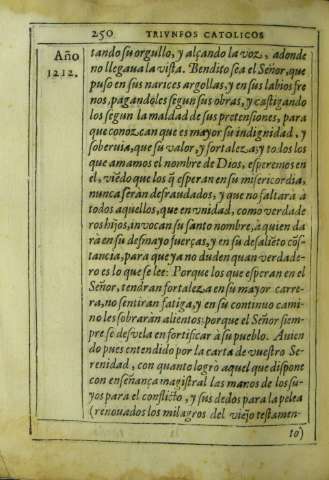 250 TRIVNFOS CATOLICOS
Año
1212.
tando su orgullo, y alçando la voz, adonde
no llegaua la vista. Bendito sea el Señor, que
puso en sus narices argollas, y en sus labios fre
nos, pagandoles segun sus obras, y castigando
los segun la maldad de sus pretensiones, para
que conozcan que es mayor su indignidad, y
soberuia, que su valor, y fortaleza; y todos los
que amamos el nombre de Dios, esperemos en
el, viẽdo que los q̃ esperan en su misericordia,
nunca serán defraudados, y que no faltarà à
todos aquellos, que en vnidad, como verdade
ros hijos, inuocan su santo nombre, à quien da
rà en su desmayo fuerças, y en su desaliẽto cõs-
tancia, para que ya no duden quan verdade-
ro es lo que se lee: Porque los que esperan en el
Señor, tendran fortaleza en su mayor carre-
ra, no sentiran fatiga, y en su continuo cami-
no les sobrarán alientos: porque el Señor siem-
pre se desvela en fortificar à su pueblo. Auien
do pues entendido por la carta de vuestro Se-
renidad, con quanto logro aquel que dispone
con enseñança magistral las manos de los su-
yos para el conflicto, y sus dedos para la pelea
(renouados los milagros del viejo testamen-
to)